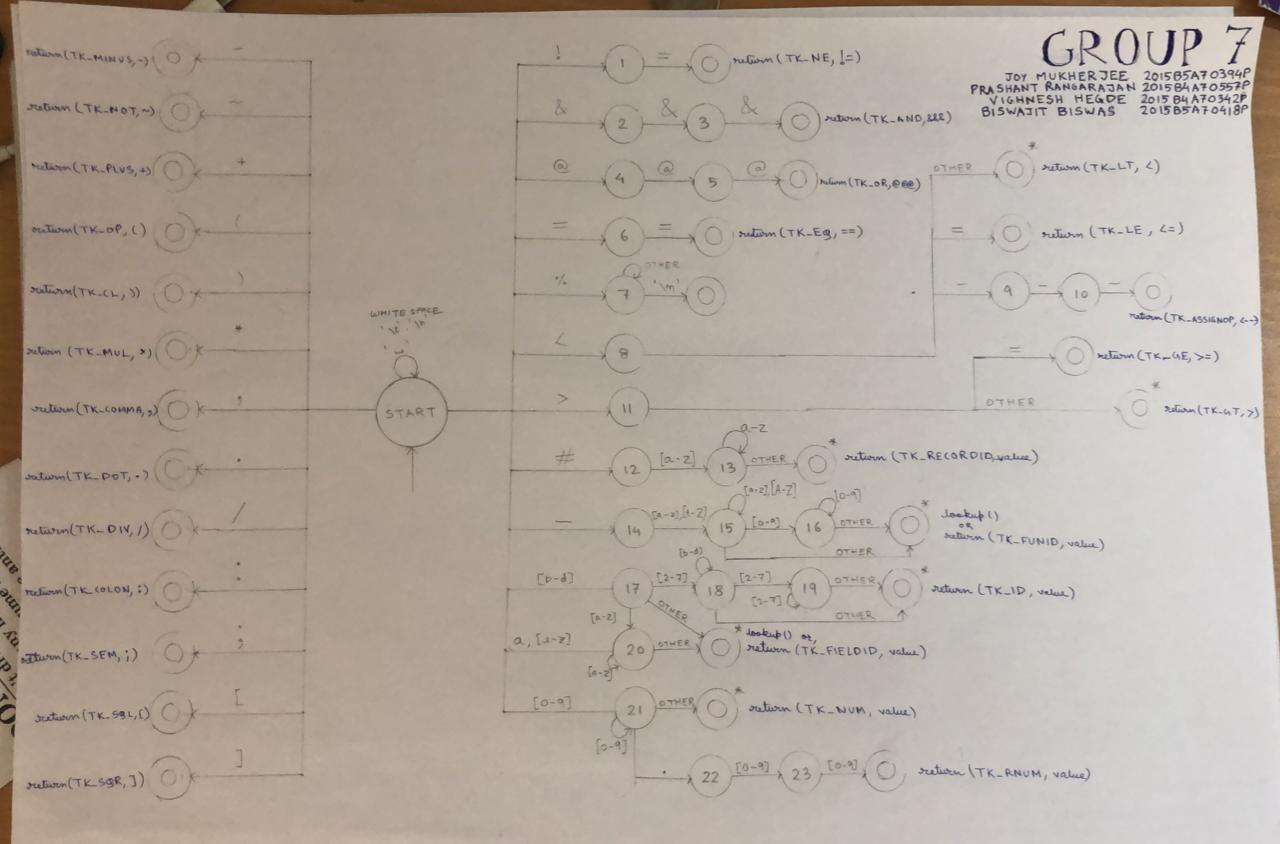 GROUP 7
JOY MUKHERJEE 2015B5A70394P
PRASHANT RANGARAJAN 2015B4A70557P
VIGHNESH HEGDE 2015B4A70342P
BISWAJIT BISWAS 2015B5A70418P
return(TK_MINUS,-) -
return(TK_NOT,~) ~
return(TK_PLUS,+) +
return(TK_OP, () (
return(TK_CL, )) )
return(TK_MUL, *) *
return(TK_COMMA,,) ,
return(TK_DOT, .) .
return(TK_DIV, /) /
return(TK_COLON, :) :
return(TK_SEM, ;) ;
return(TK_SQL,[) [
return(TK_SQR, ]) ]
WHITE SPACE
START
! 1 = return(TK_NE, !=)
& 2 & 3 & return(TK_AND,&&&)
@ 4 @ 5 @ return(TK_OR,@@@)
= 6 = return(TK_EQ, ==)
OTHER
% 7 '\n'
< 8
OTHER * return(TK_LT, <)
= return(TK_LE, <=)
- 9 - 10 - return(TK_ASSIGNOP, <--)
> 11
= return(TK_GE, >=)
OTHER * return(TK_GT, >)
a-z
# 12 [a-z] 13 OTHER * return(TK_RECORDID,value)
[a-z],[A-Z] [0-9]
_ 14 [a-z],[A-Z] 15 [0-9] 16 OTHER * lookup()
OR
return(TK_FUNID, value)
OTHER
[b-d]
[b-d] 17 [2-7] 18 [2-7] 19 OTHER * return(TK_ID, value)
[2-7]
OTHER
[a-z] OTHER
a, [e-z] 20 OTHER * lookup() or,
return(TK_FIELDID, value)
[a-z]
[0-9] 21 OTHER * return(TK_NUM, value)
[0-9]
. 22 [0-9] 23 [0-9] return(TK_RNUM, value)